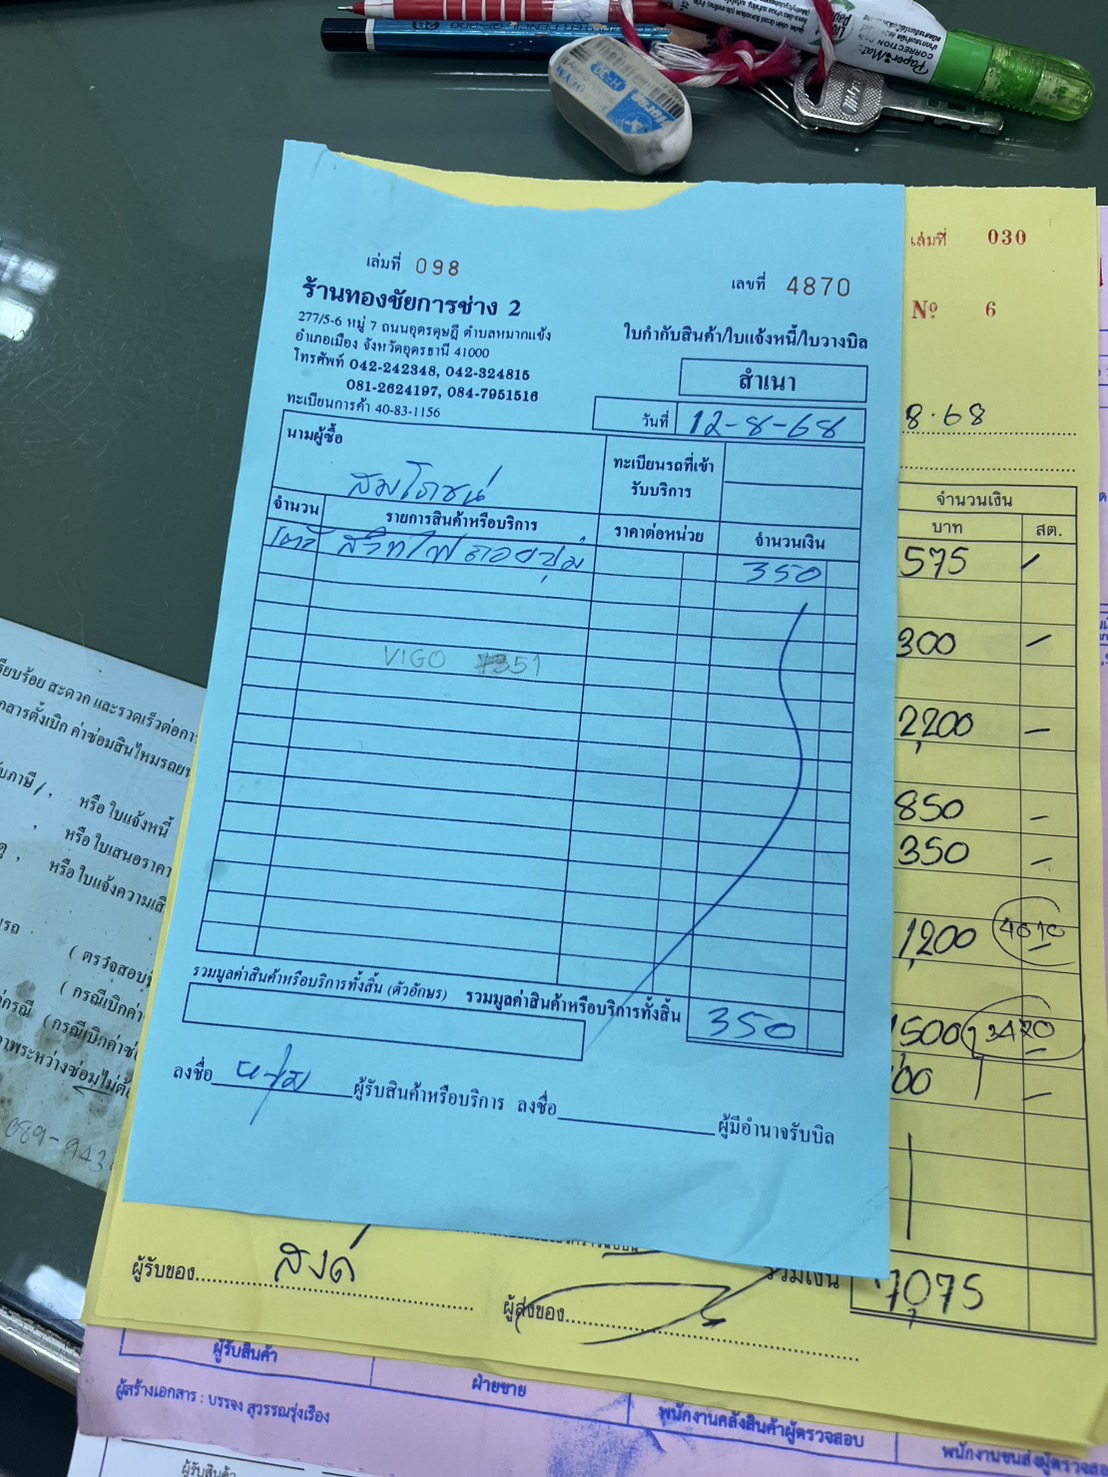 เล่มที่ 098
เลขที่ 4870
ร้านทองชัยการช่าง 2
277/5-6 หมู่ 7 ถนนอุดรดุษฎี ตำบลหมากแข้ง
อำเภอเมือง จังหวัดอุดรธานี 41000
โทรศัพท์ 042-242348, 042-324815
081-2624197, 084-7951516
ทะเบียนการค้า 40-83-1156
ใบกำกับสินค้า/ใบแจ้งหนี้/ใบวางบิล
สำเนา
วันที่ 12-8-68
นามผู้ซื้อ
สมโภชน์
ทะเบียนรถที่เข้า
รับบริการ
จำนวน รายการสินค้าหรือบริการ ราคาต่อหน่วย จำนวนเงิน
สวิทไฟถอยปุ่ม 350
VIGO 351
รวมมูลค่าสินค้าหรือบริการทั้งสิ้น (ตัวอักษร) รวมมูลค่าสินค้าหรือบริการทั้งสิ้น 350
ลงชื่อ ผู้รับสินค้าหรือบริการ ลงชื่อ ผู้มีอำนาจรับบิล
เล่มที่ 030
Nº 6
8.68
จำนวนเงิน
บาท สต.
575 -
300 -
2,200 -
850 -
350 -
1,200
500
00 -
รวมเงิน 7,075
ผู้รับของ สงด์
ผู้ส่งของ
ผู้รับสินค้า
ฝ่ายขาย
พนักงานคลังสินค้าผู้ตรวจสอบ
พนักงานขนส่งผู้ตรวจสอ
ผู้สร้างเอกสาร : บรรจง สุวรรณรุ่งเรือง
ผู้รับสินค้า
รียบร้อย สะดวก และรวดเร็วต่อกา
กสารตั้งเบิก ค่าซ่อมสินไหมรถยน
หรือ ใบแจ้งหนี้
หรือ ใบเสนอราคา
หรือ ใบแจ้งความเสี
( ตรวจสอบ
( กรณีเบิกค่า
(กรณีเบิกค่าซ่
าพระหว่างซ่อมไม่ต้
089-943
PaperMate
CORRECTION PEN